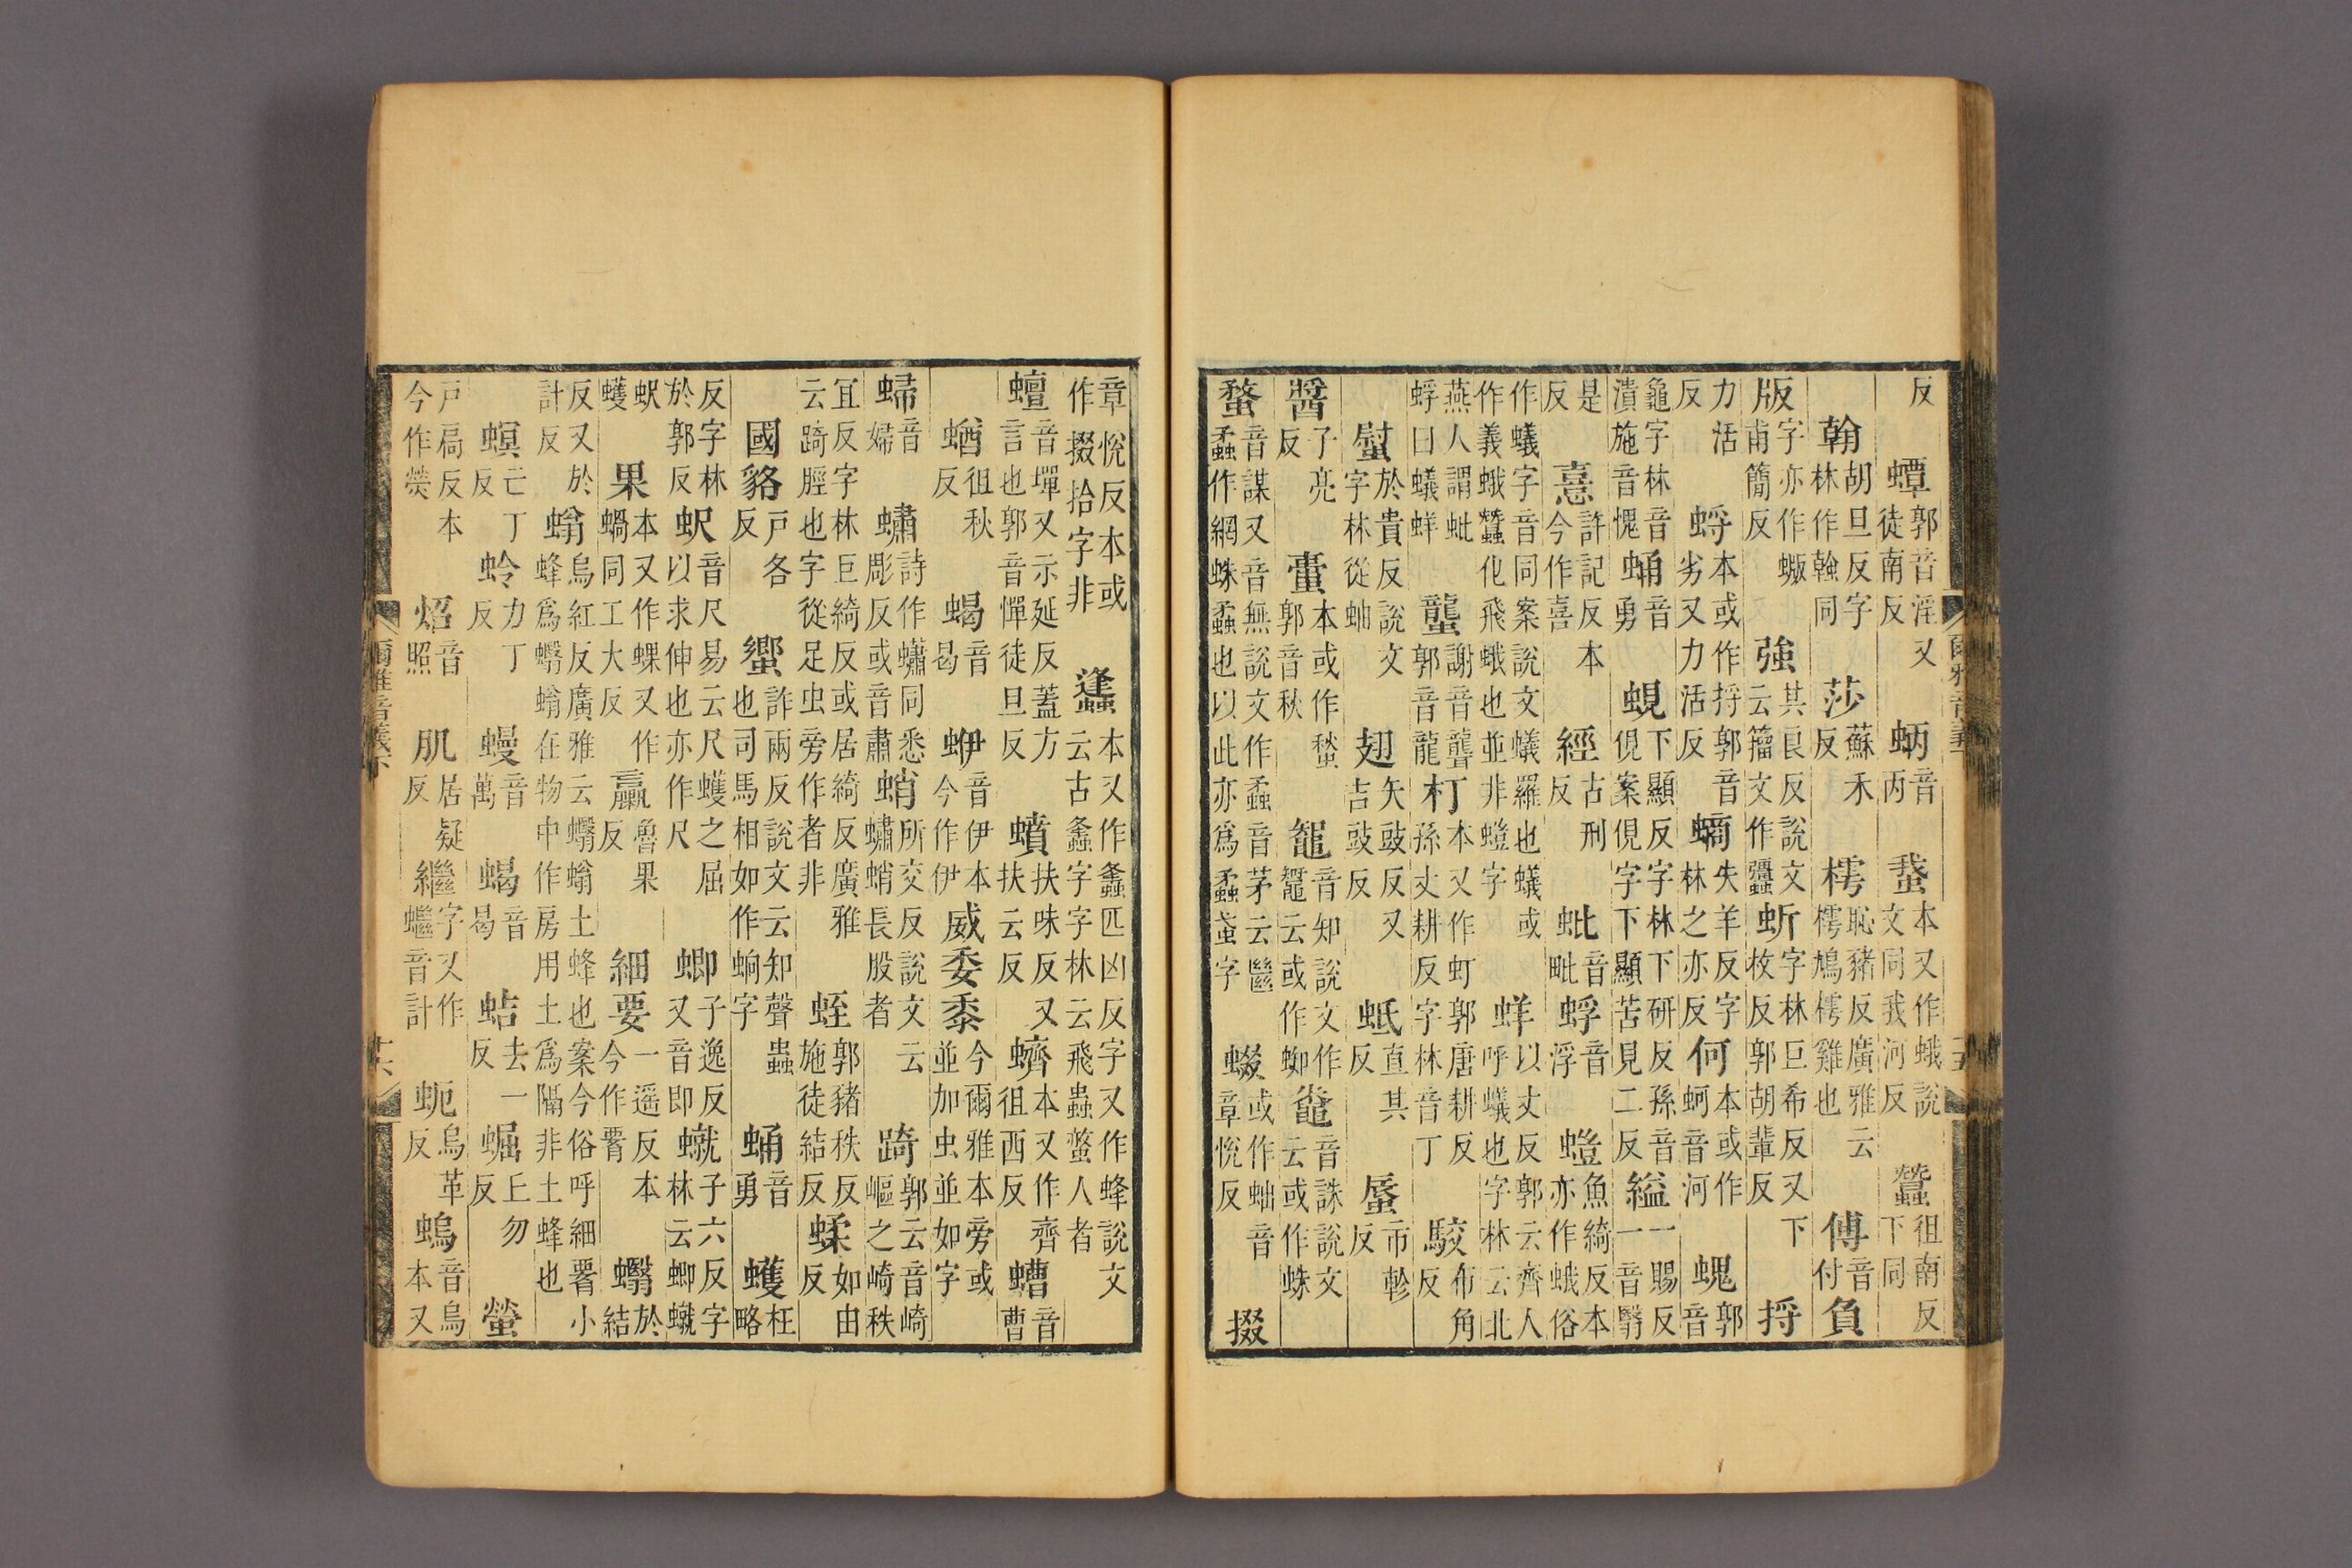 反蟫郭音淫又徒南反蛃音丙䖸本又作蛾說文同我河反蠶祖南反下同
翰胡旦反字林作螒同莎蘇禾反樗恥豬反廣雅云樗鳩樗雞也傅音付負
版字亦作蝂甫簡反強其良反說文云籀文作䖑蚚字林巨希反又下枚反郭胡輩反捋
力活反蛶本或作捋郭音劣又力活反螪失羊反字林之亦反何本或作蚵音河螝郭音
龜字林音潰施音愧蛹音勇蜆下顯反字林下研反孫音俔案俔字下顯苦見二反縊一賜反一音翳
是反憙許記反本今作喜經古刑反蚍音毗蜉音浮螘魚綺反本亦作蛾俗
作蟻字音同案說文蟻羅也蟻或作義蛾蠶化飛蛾也並非螘字蛘以丈反郭云齊人呼蟻也字林云北
燕人謂蚍蜉曰蟻蛘蠪謝音聾郭音龍朾本又作虰郭唐耕反孫丈耕反字林音丁駮布角反
螱於貴反說文字林從䖵翅矢豉反又吉豉反蚳直其反蜃市軫反
醬子亮反蟗本或作郭音秋鼅音知說文作鼅云或作蜘鼄音誅說文云或作蛛
蝥音謀又音無說文作蟊音茅云蟊作網蛛蟊也以此亦為蟊䖟字蝃或作蚰音章悅反掇
爾雅音義下 十五
章悅反本或作掇拾字非蠭本又作䗬匹凶反字又作蜂說文云古䗬字字林云飛蟲螫人者
蟺音墠又示延反蓋方言也郭音憚徒旦反蟦扶味反又扶云反蠐本又作齊徂西反螬音曹
蝤徂秋反蝎音曷蛜音伊本今作伊威委黍今爾雅本旁或並加虫並如字
𧌈音婦蟰詩作蠨同悉彫反或音肅蛸所交反說文云蟰蛸長股者踦郭云音崎嶇之崎秩
宜反字林巨綺反或居綺反廣雅云踦脛也字從足虫旁作者非蛭郭豬秩反施徒結反蝚如由反
國貉戶各反蠁詐兩反說文云知聲蟲也司馬相如作蚼字蛹音勇蠖枉略
反字林於郭反蚇音尺易云尺蠖之屈以求伸也亦作尺蝍子逸反又音即䗘子六反字林云蝍䗘
蚇蠖果本又作蜾又作蝸同工大反蠃魯果反細要一遙反本今作䙅蠮於結
反又於計反螉烏紅反廣雅云蠮螉土蜂也案今俗呼細䙅小蜂為蠮螉在物中作房用土為隔非土蜂也
螟亡丁反蛉力丁反蟃音萬蝎音曷蛣去一反𧌑丘勿反螢
戶扃反本今作熒炤音照肌居疑反繼字又作蠿音計蚅烏革反螐音烏本又
爾雅音義下 十六